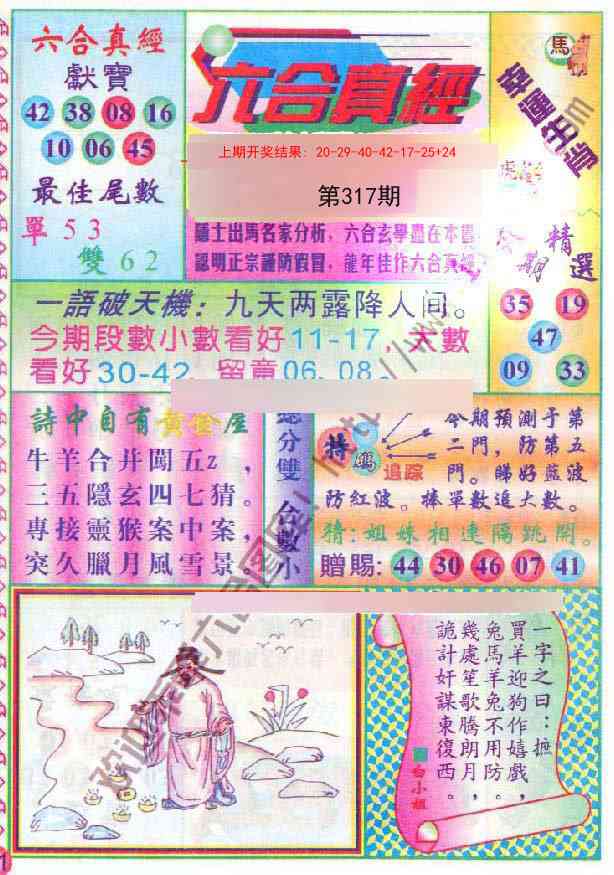 六合真經
獻寶
42 38 08 16
10 06 45
最佳尾數
單 5 3
雙 6 2
六合真經
上期开奖结果: 20-29-40-42-17-25+24
第317期
隱士出馬名家分析,六合玄學盡在本
認明正宗謹防假冒,龍年佳作六合真經
馬
期
精
選
35 19
47
09 33
一語破天機:九天两露降人间。
今期段數小數看好11-17,大數
看好30-42,留意06,08。
詩中自有黃金屋
牛羊合井闖五z,
三五隱玄四七猜。
專接靈猴案中案,
突久臘月風雪景
總分雙
合數小
特碼
追踪
今期預測于第
二門,防第五
門。睇好藍波
防紅波。棒單數追大數。
猜:姐妹相連隔跳開。
贈賜: 44 30 46 07 41
一字之曰:摭
買羊迎狗作嬉戲,
兔馬羊兔不用防。
幾處笙歌騰朗月,
詭計奸謀東復西。
白小姐